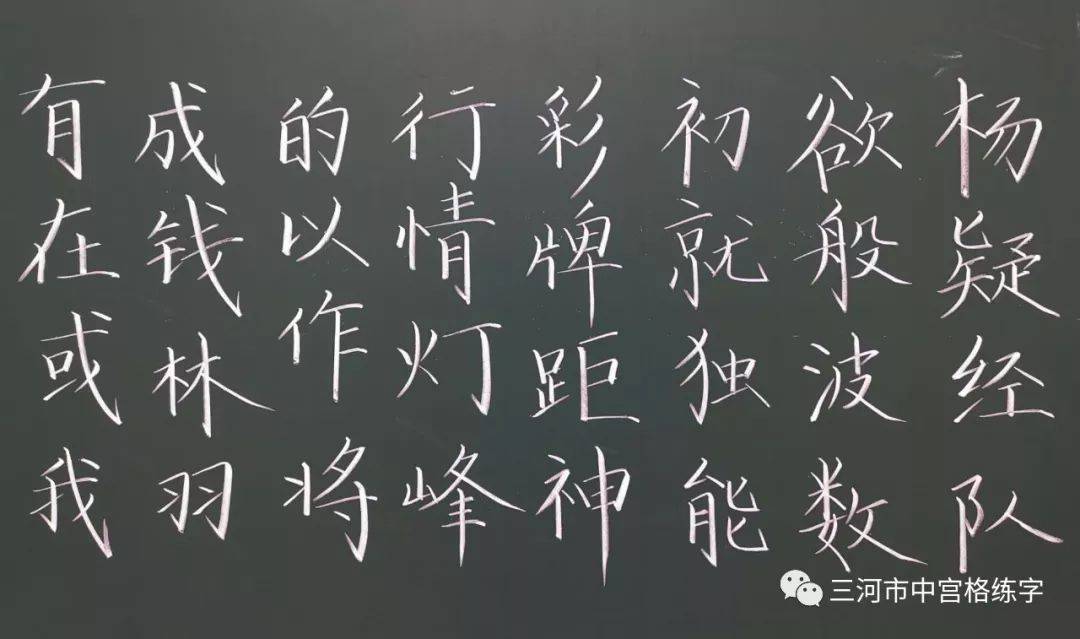 有成的行彩初欲杨
在钱以情牌就般疑
或林作灯距独波经
我羽将峰神能数队
三河市中宫格练字